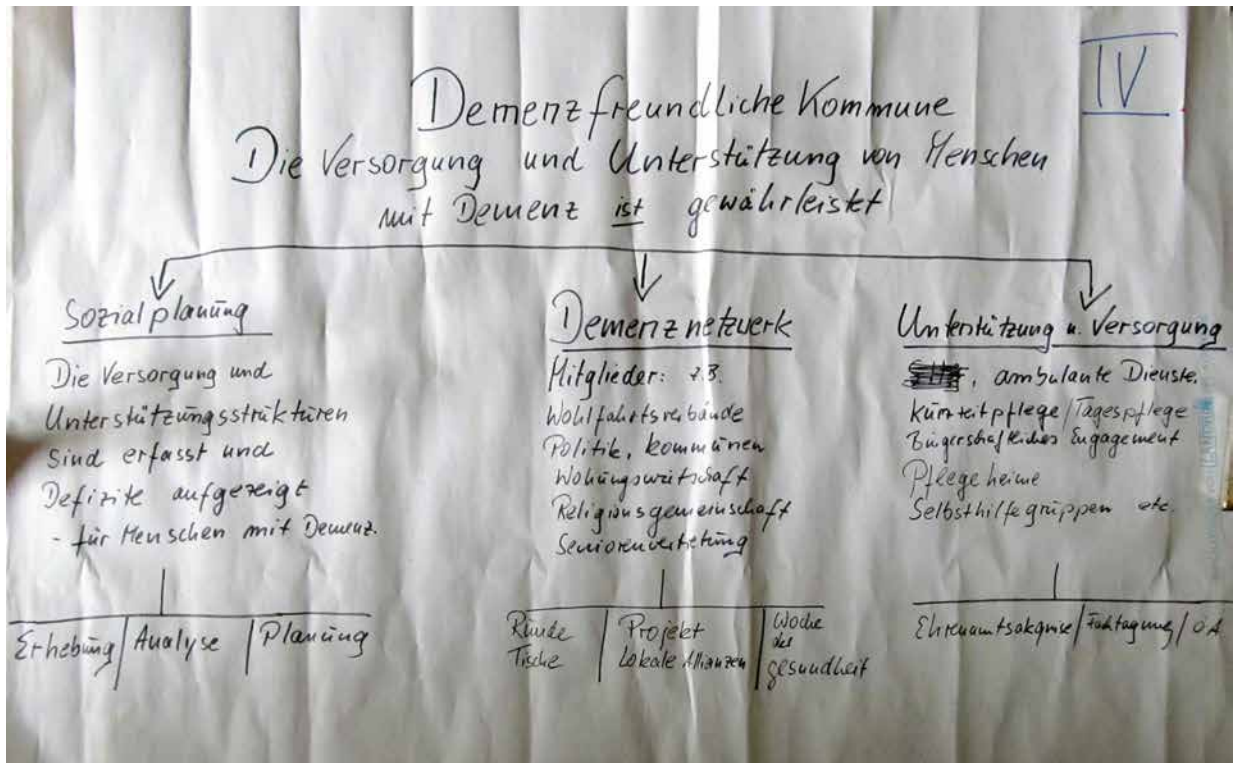 IV
Demenzfreundliche Kommune
Die Versorgung und Unterstützung von Menschen
mit Demenz ist gewährleistet
Sozialplanung
Die Versorgung und
Unterstützungsstrukturen
sind erfasst und
Defizite aufgezeigt
- für Menschen mit Demenz.
Erhebung / Analyse / Planung
Demenznetzwerk
Mitglieder: z.B.
Wohlfahrtsverbände
Politik, Kommunen
Wohnungswirtschaft
Religionsgemeinschaft
Seniorenvertretung
Runde
Tische
Projekt
Lokale Allianzen
Woche
der
gesundheit
Unterstützung u. Versorgung
, ambulante Dienste.
Kurzzeitpflege/Tagespflege
Bürgerschaftliches Engagement
Pflegeheime
Selbsthilfegruppen etc.
Ehrenamtsakquise / Fachtagung / ÖA